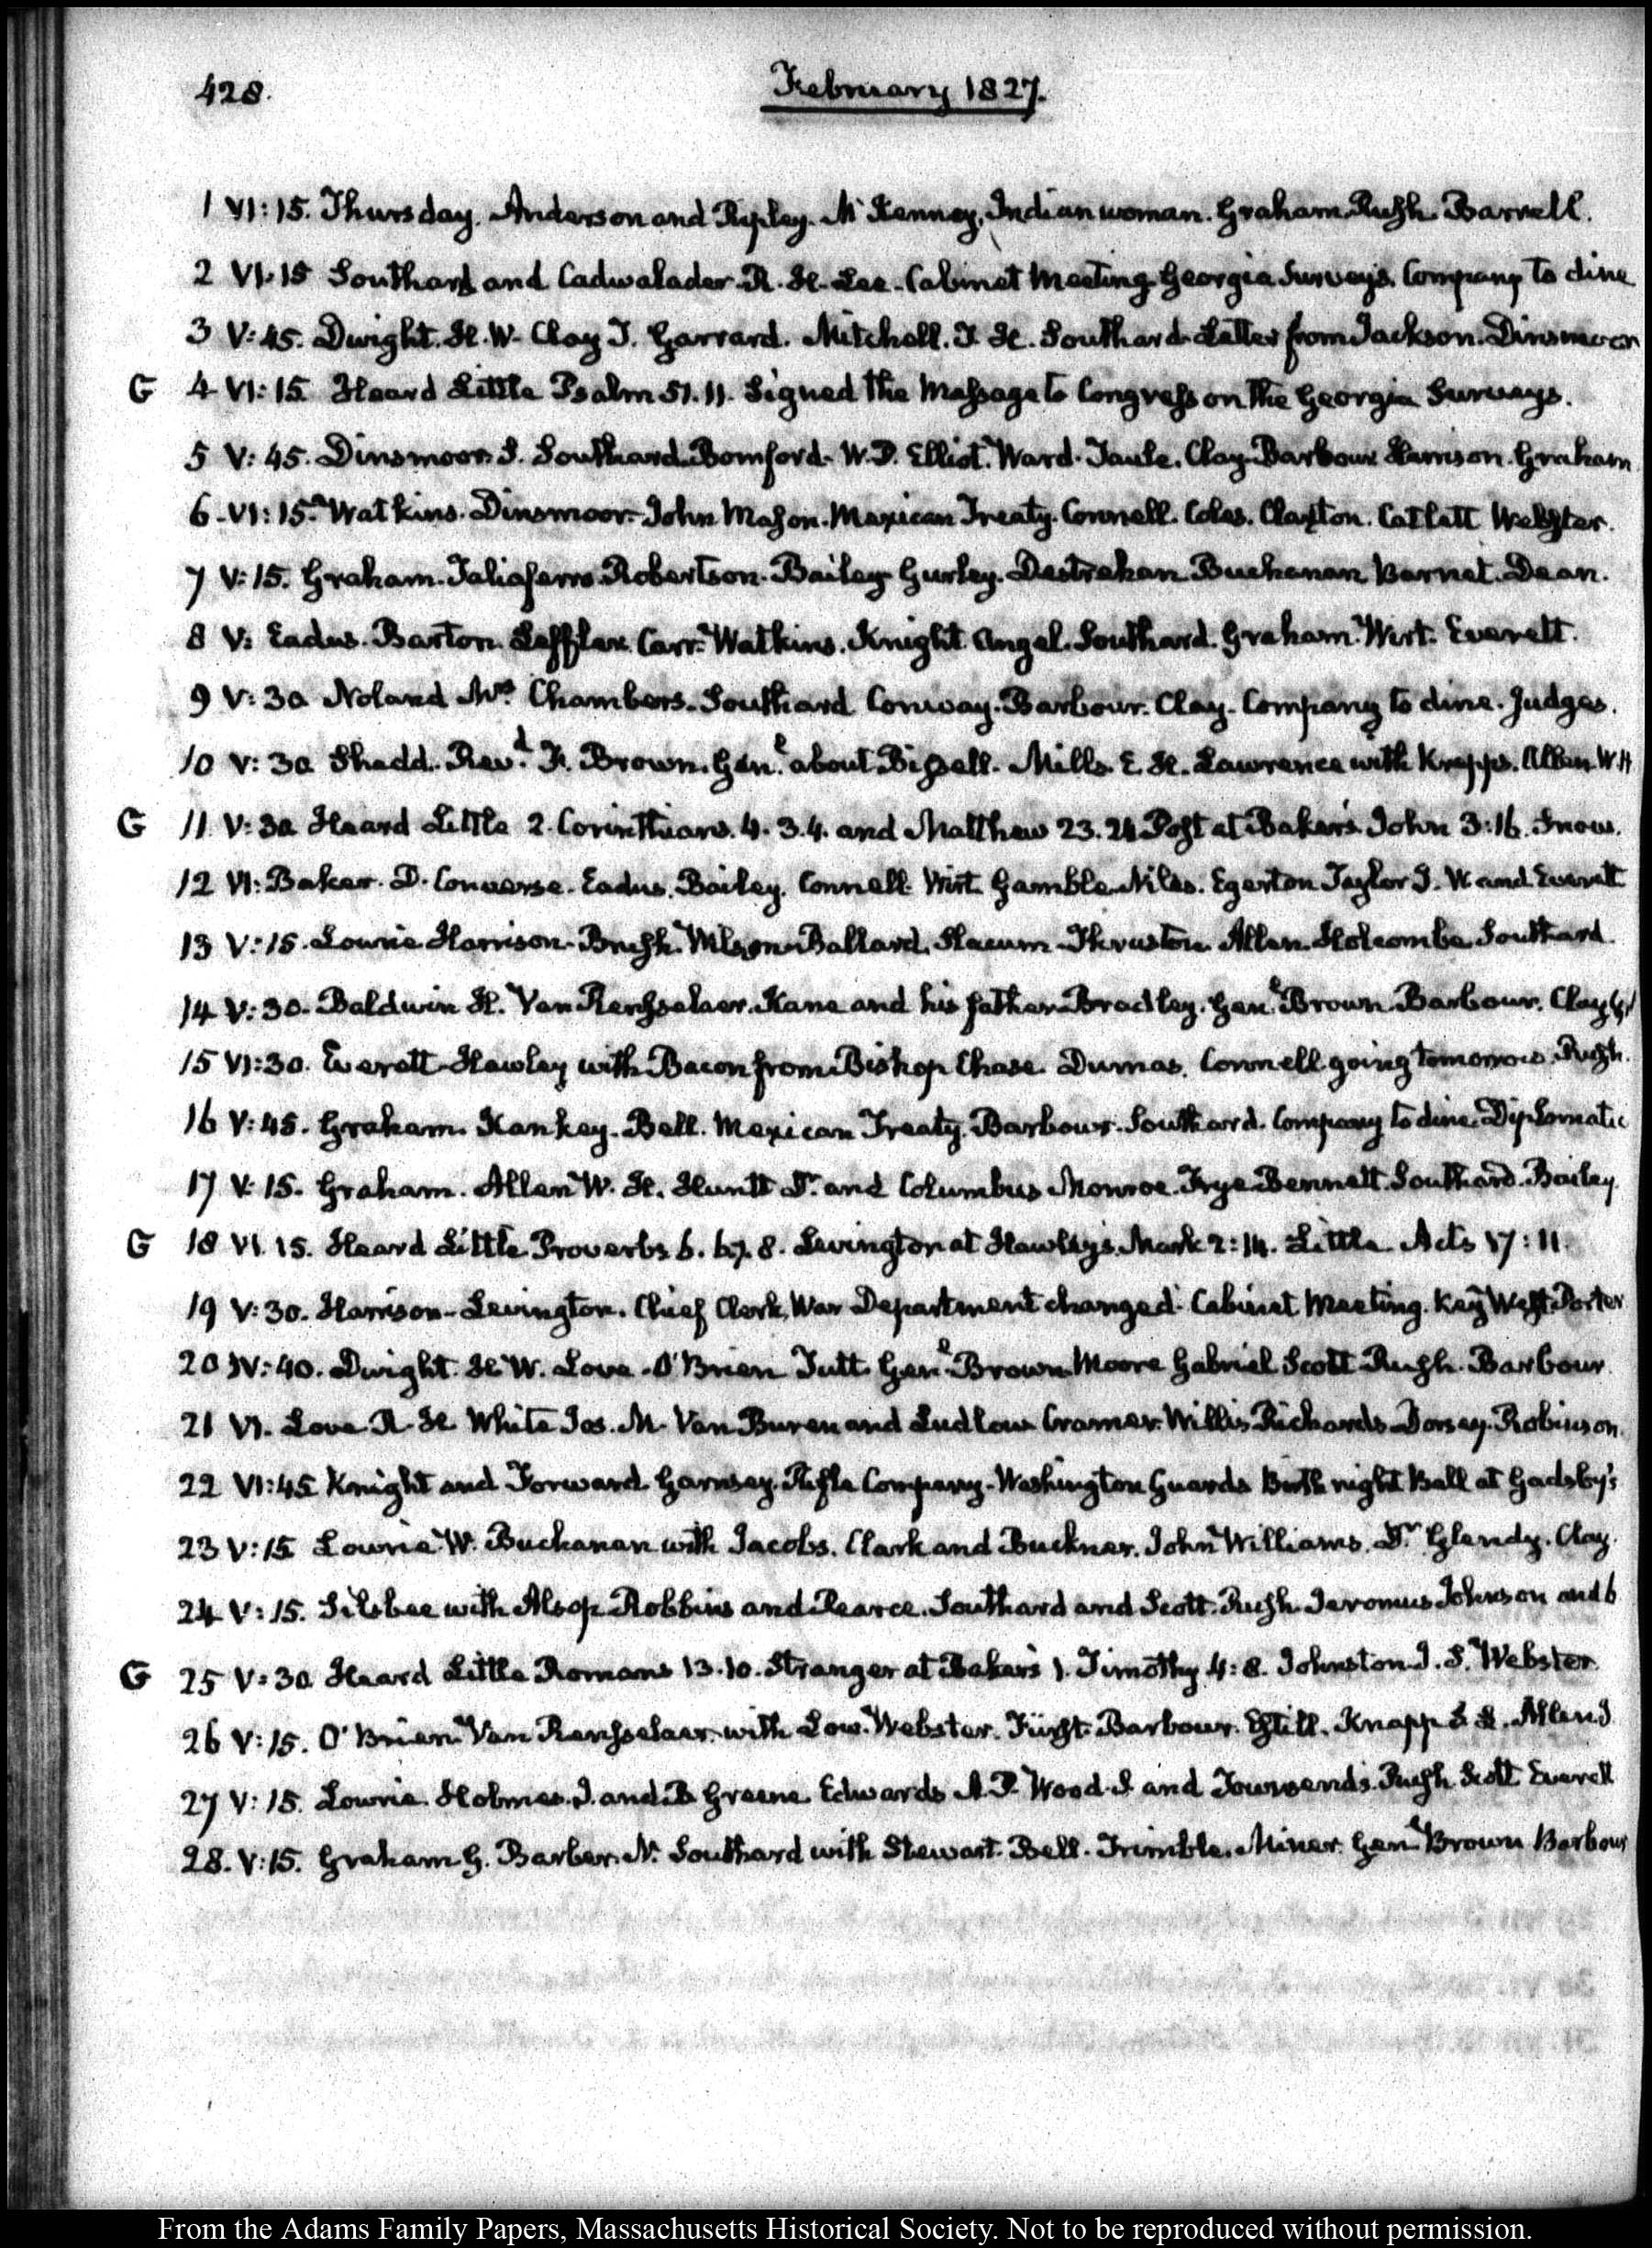 428.
February 1827.
1 VI:15. Thursday. Anderson and Ripley. McKenney, Indian woman. Graham. Rush. Barrell.
2 VI.15 Southard and Cadwalader. R. H. Lee. Cabinet Meeting. Georgia Surveys. Company to dine
3 V:45. Dwight. H. W. Clay J. Garrard. Mitchell. T. H. Southard. Letter from Jackson. Dinsmoor
G 4 VI:15. Heard Little Psalm 51.11. Signed the Message to Congress on the Georgia Surveys.
5 V:45. Dinsmoor S. Southard. Bomford. W. P. Elliot. Ward. Clay. Barbour Harrison. Graham
6. VI:15. Watkins. Dinsmoor. John Mason. Mexican Treaty. Connell. Coles. Clayton. Catlett Webster.
7 V:15. Graham. Taliaferro. Robertson. Bailey Gurley. Destrehan Buchanan Barnet. Dean.
8 V: Eadus. Barton. Leffler. Carr. Watkins. Knight. Angel. Southard. Graham. Wirt. Everett.
9 V:30 Noland Mrs. Chambers. Southard Conway. Barbour. Clay. Company to dine. Judges.
10 V:30 Shedd. Revd. Brown. Genl. about Bissell. Mills. E. H. Lawrence with Krepps. Allen W. H
G 11. V:30 Heard Little 2. Corinthians. 4. 3.4. and Matthew 23.24 Post at Baker's. John 3:16. Snow.
12 VI: Baker. D. Converse. Eadus. Bailey. Connell. Wirt. Gamble. Niles. Egerton Taylor J. W. and Everett
13 V:15. Lowrie Harrison. Brush. Wilson. Ballard. Slacum. Thruston. Allen. Holcombe. Southard.
14 V:30. Baldwin H. Van Rensselaer. Kane and his father. Bradley. Genl. Brown. Barbour. Clay
15 VI:30. Everett. Hawley with Bacon from Bishop Chase. Dumas. Connell going tomorrow. Rush.
16 V:45. Graham. Kankey. Bell. Mexican Treaty. Barbour. Southard. Company to dine. Diplomatic
17 V.15. Graham. Allen W. H. Huntt Dr. and Columbus Monroe. Frye Bennett. Southard. Bailey
G 18 VI.15. Heard Little Proverbs 6. 6.7.8. Levington at Hawley's. Mark 2:14. Little Acts 17:11.
19 V:30. Harrison. Levington. Chief Clerk, War Department changed. Cabinet Meeting. Key West. Porter
20 IV:40. Dwight H W. Love. O'Brien Tutt. Genl. Brown Moore Gabriel Scott Rush. Barbour.
21 VI. Love R. H White Jos. M. Van Buren and Ludlow Cramer. Willis Richards Dorsey. Robinson.
22 VI:45 Knight and Forward Garnsey. Rifle Company. Washington Guards Birth night Ball at Gadsby's
23 V:15 Lowrie W. Buchanan with Jacobs. Clark and Buckner. John Williams. Dr. Glendy. Clay.
24 V:15. Silsbee with Alsop Robbins and Pearce. Southard and Scott. Rush Jeromus Johnson and 6
G 25 V:30 Heard Little Romans 13.10. Stranger at Baker's 1. Timothy 4:8. Johnston J. S. Webster.
26 V:15. O'Brien. Van Rensselaer. with Low. Webster. Fürst. Barbour. Estill. Knapp S. H. Allen J
27 V:15. Lowrie. Holmes. J. and B Greene Edwards A. P. Wood S. and Townsends. Rush. Scott Everett
28. V:15. Graham G. Barber. N. Southard with Stewart. Bell. Trimble. Miner. Genl Brown Barbour
From the Adams Family Papers, Massachusetts Historical Society. Not to be reproduced without permission.